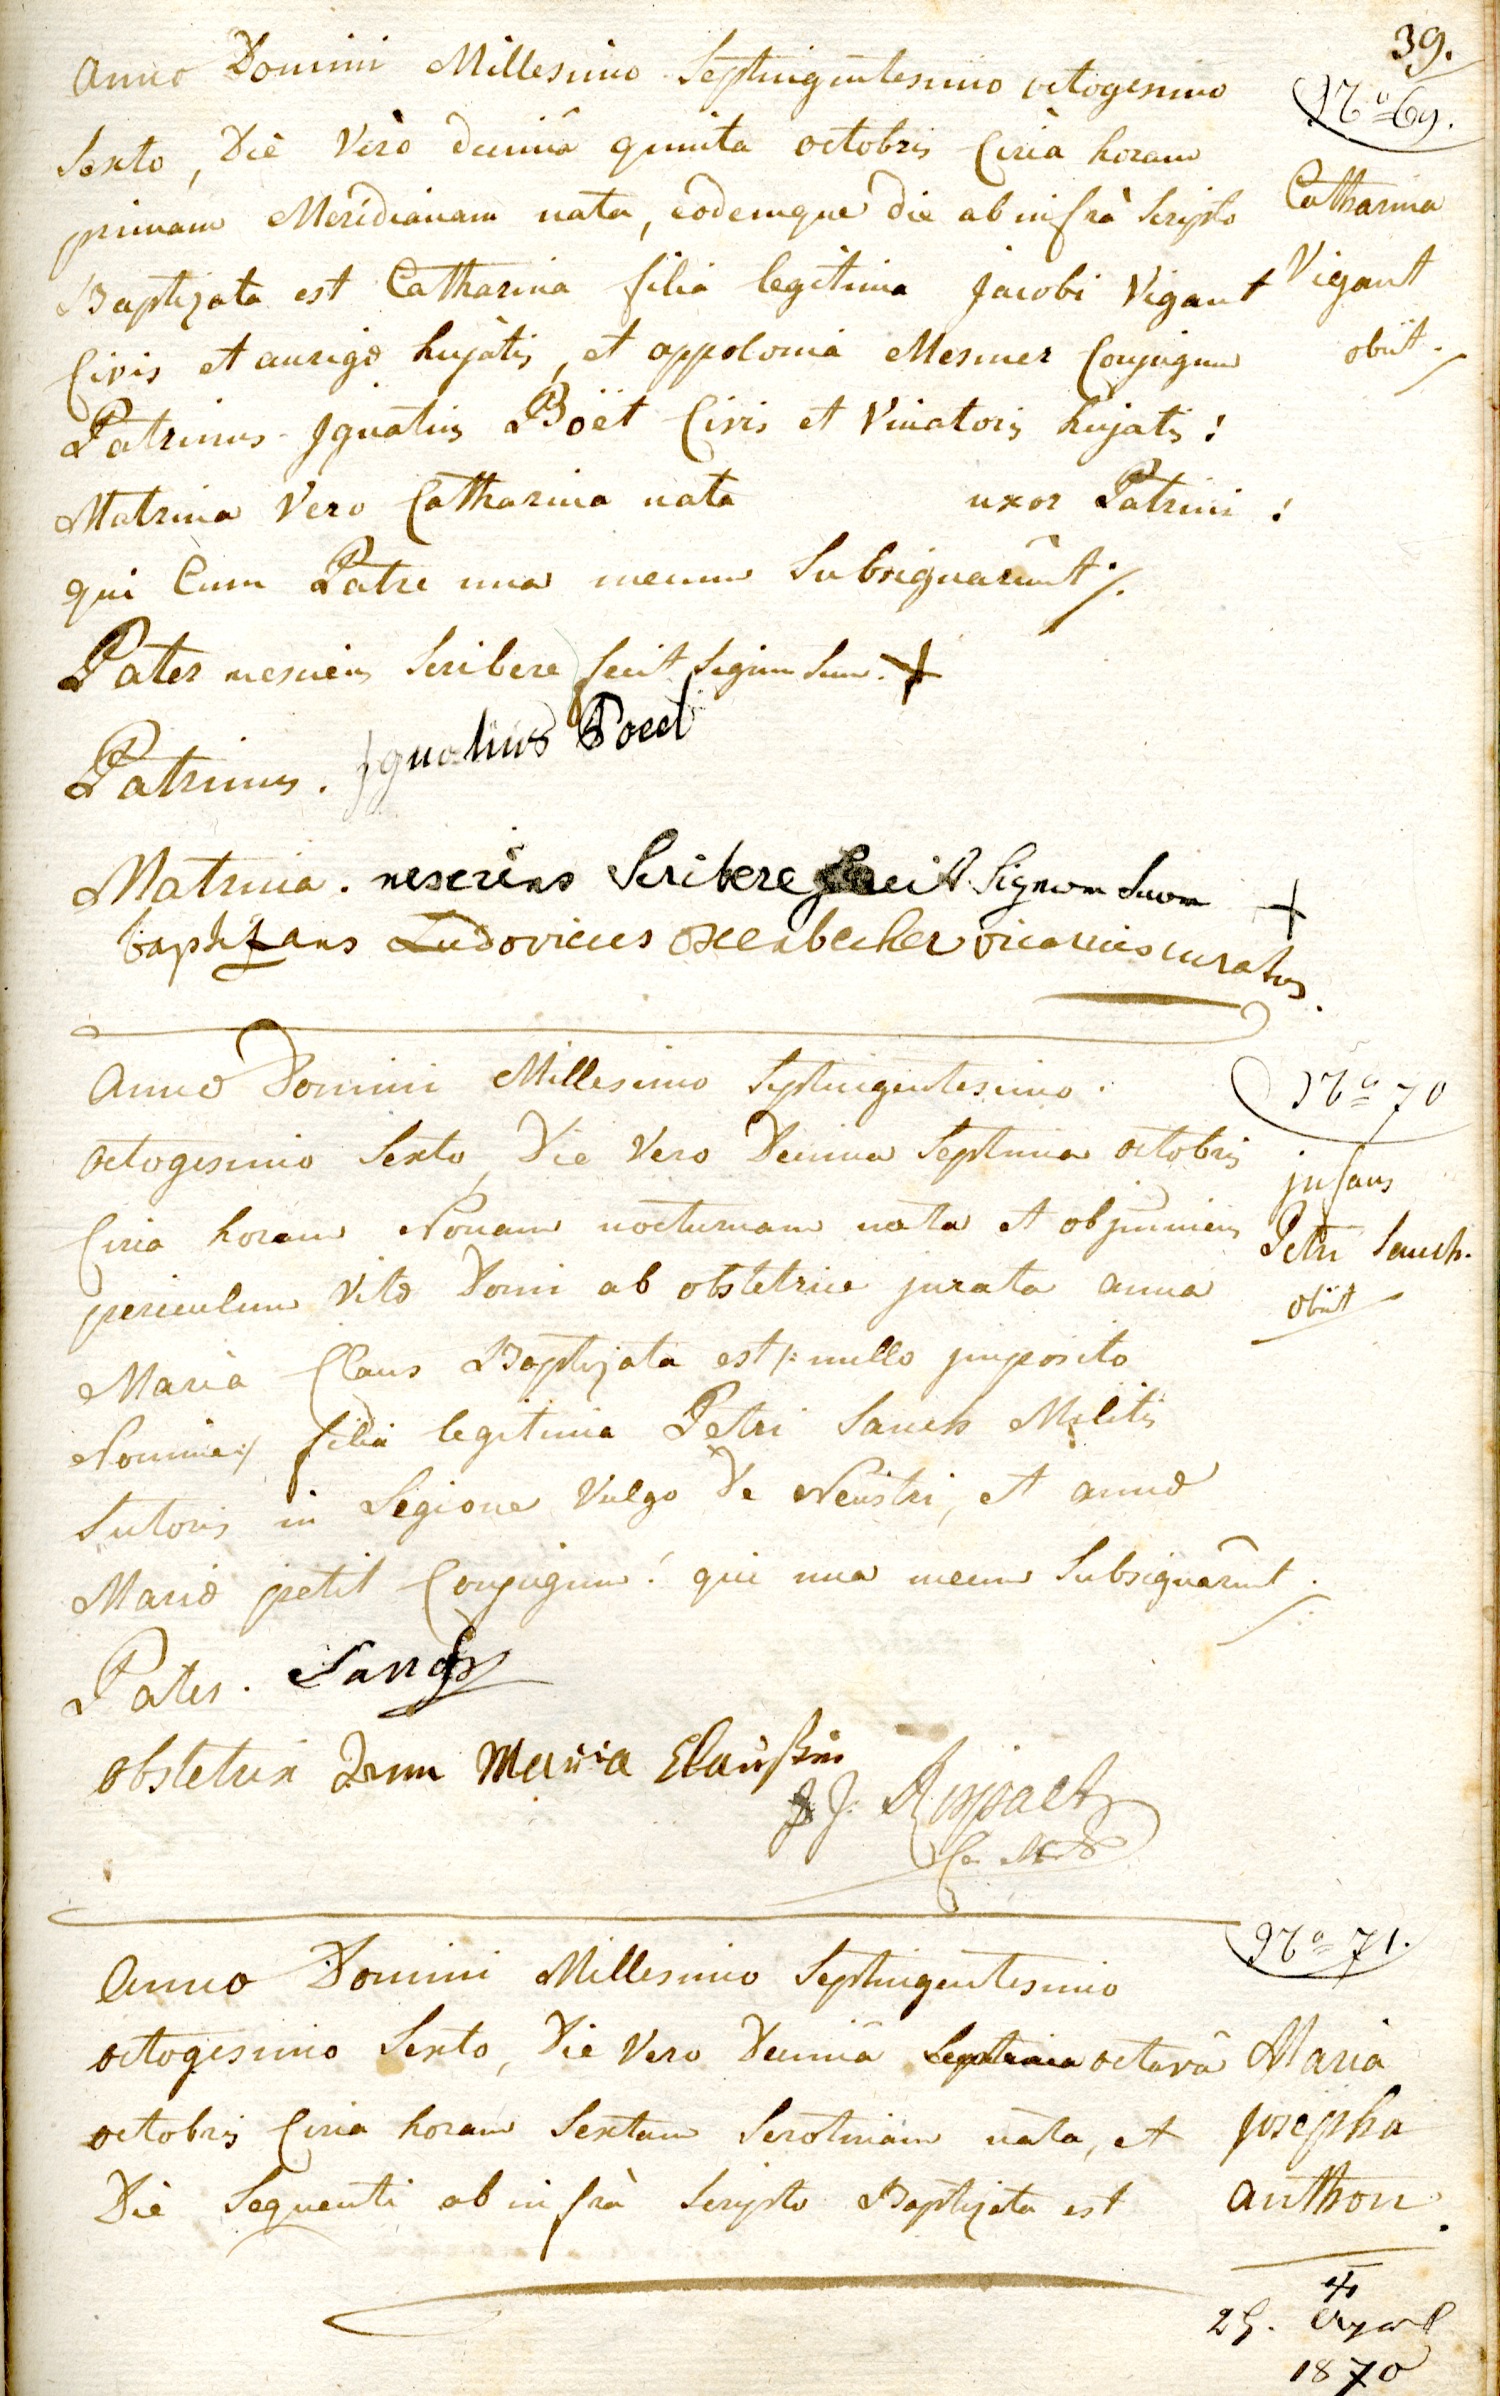 39.
Anno Domini Millesimo Septingentesimo octogesimo
Sexto, Diè Vèrò decimâ quinta octobris Circà horam
primam Meridianam nata, eodemque die ab infrà scripto
Baptizata est Catharina filia legitima Jacobi Vigant
Civis et aurigæ hujàtis, et appolonia Mesmer Conjugum
Patrinus Ignatius Böët Civis et Vinatoris hujatis!
Matrina Vero Catharina nata uxor Patrini!
qui Cum Patre una mecum Subsignarûnt ./.
Pater nesciens scribere fecit signum suum. +
Patrinus. Ignatius Boeet
Matrina. nesciens Scribere fecit Signum Suum +
baptizans Ludovicus oxenbecher vicarius curatus.
Nº 69.
Catharina
Vigant
obiit.
Anno Domini Millesimo Septingentesimo.
octogesimo Sexto, Die Vero Decima Septima octobris
Circa horam Nonam nocturnam nata et ob jminiens
periculum Vitæ Domi ab obstetrice jurata anna
Maria Claus Baptizata est /: nullo jmposito
Nomine :/ filia legitima Petri Sauch Militis
Sutoris in Legione Vulgo De Neustri, et annæ
Mariæ petit Conjugum! qui una mecum Subsignarûnt.
Pater. Sauch
obstetrix Anna Maria Claußin
J. Ruppaert
Nº 70
jnfans
Petri Sauch.
obiit
Anno Domini Millesimo Septingentesimo
octogesimo Sexto, Diè Vero Decimâ Septima octavâ
octobris Circa horam Sextam Serotinam nata, et
Diè Sequenti ab infrà Scripto Baptizata est
Nº 71.
Maria
josepha
anthon.
1870